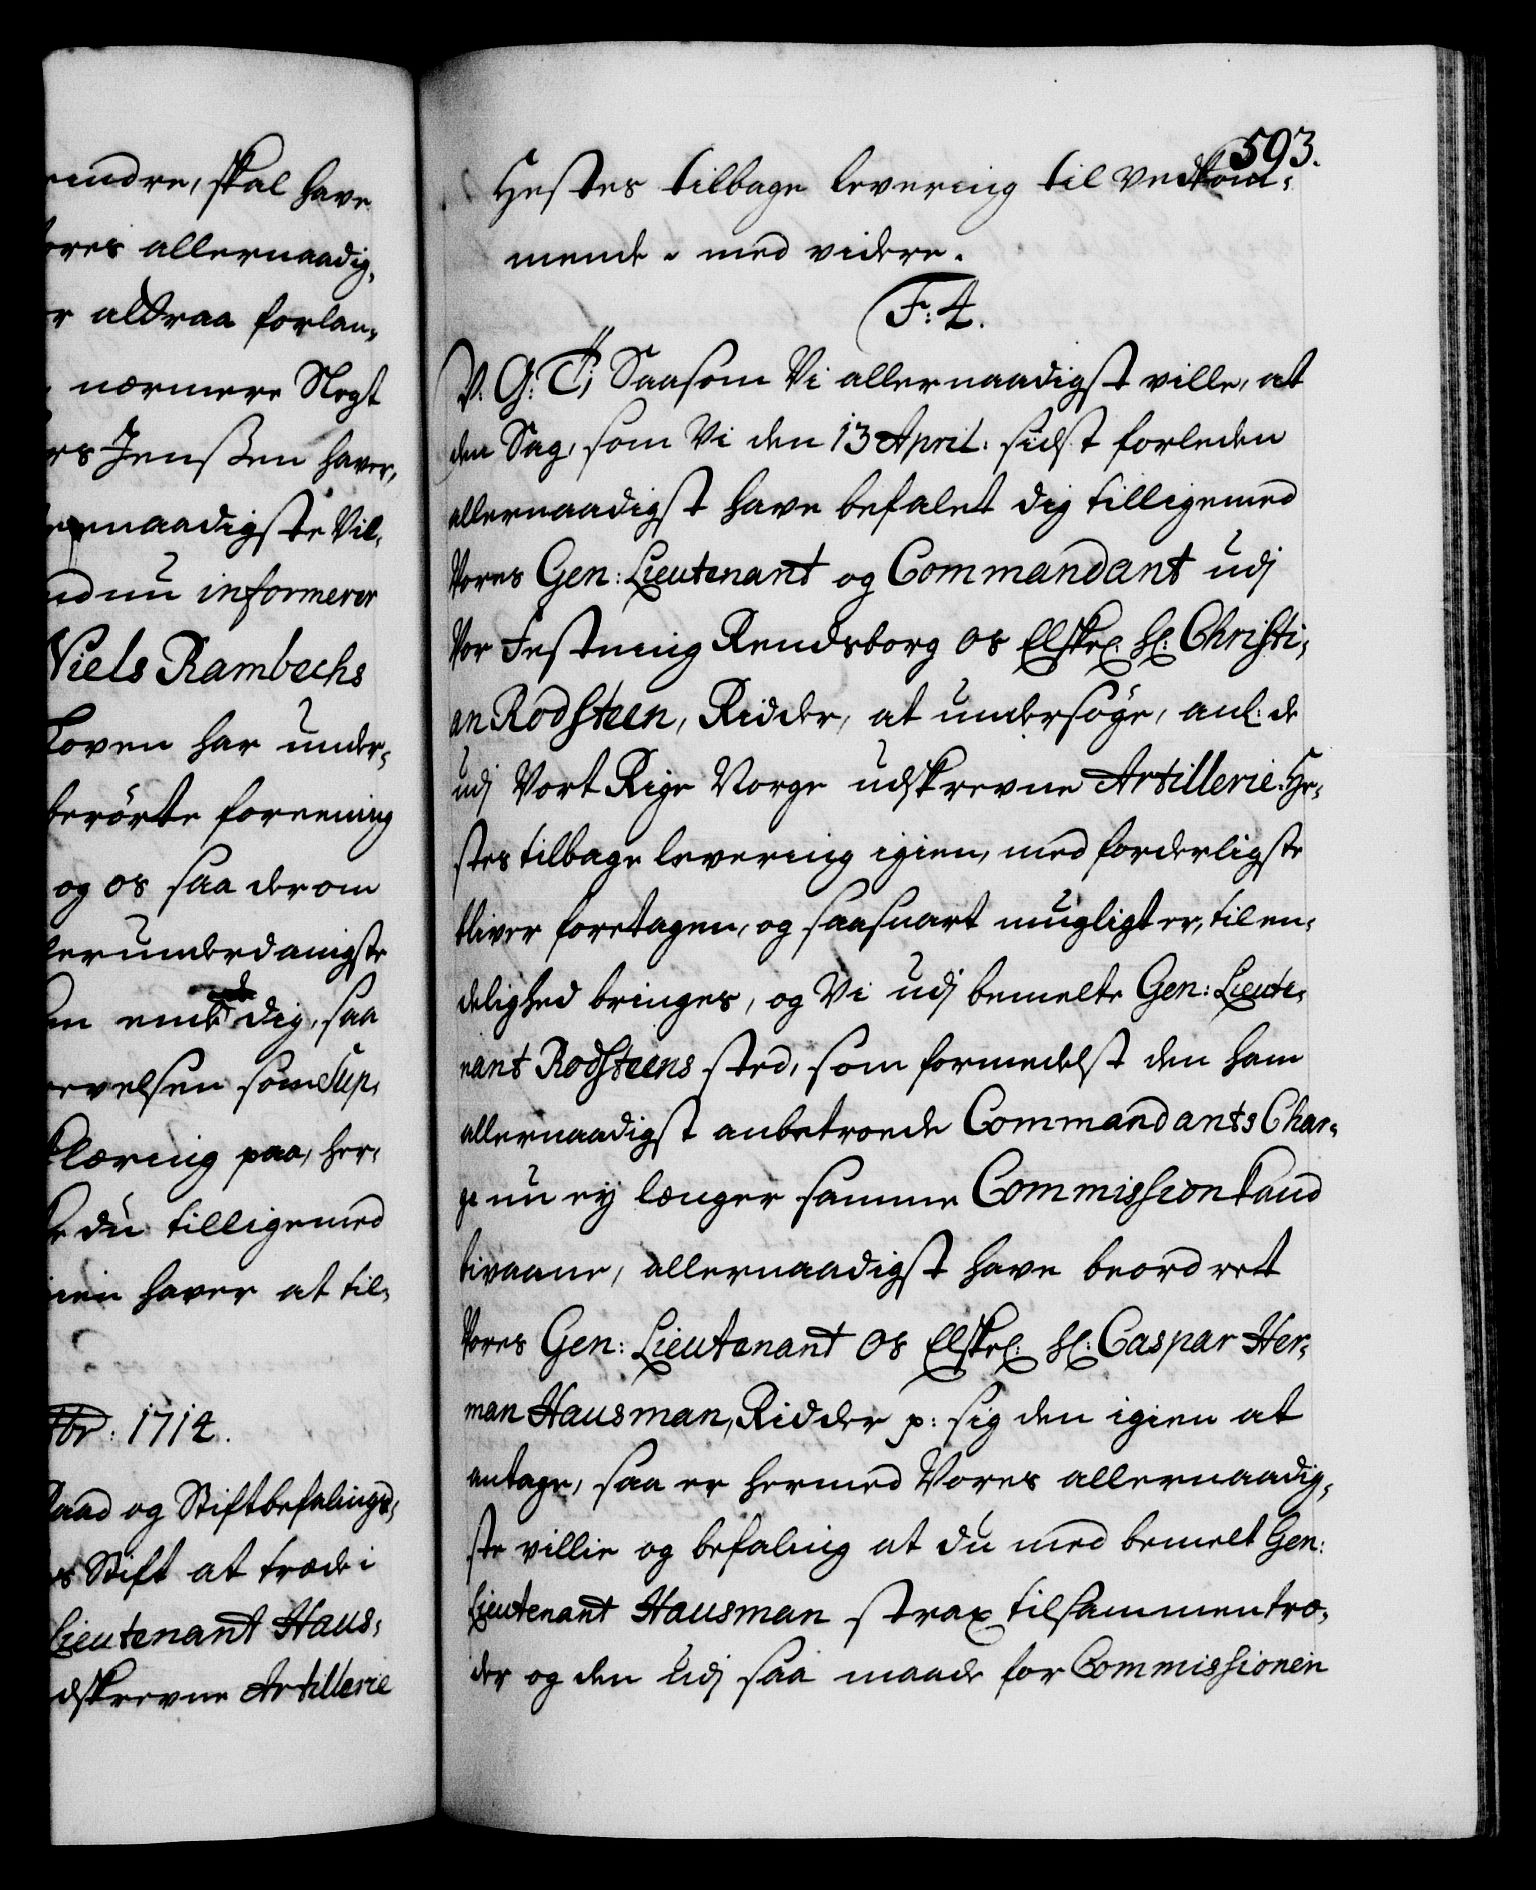 rindre, skal have
vores allernaadig-
or altraa forlan-
nærmere Slegt
ers Jenssen haver,
lernaadigste Vil-
nd nu informerer
Niels Rambechs
Loven har under-
berörte foreening
og os saa derom
lerunderdanigste
dig, saa
revelsen som Sup-
klæring paa, her-
du tilligemed
haver at til-
tbr: 1714.
Raad og Stiftbefalings-
s Stift at træde i
Lieutenant Haus-
dskrevne Artillerie
593.
Hestes tilbage levering til vedkom-
mende, med videre.
F: 4.
V. G: T; Saasom Vi allernaadigst ville, at
den Sag, som Vi den 13 April: sidst forleden
allernaadigst have befalet dig tilligemed
Vores Gen: Lieutenant og Commandant udj
Vor Festning Rendsborg os Elskel: Hl: Christi-
an Rodsteen, Ridder, at undersöge, anl: de
udj Vort Rige Norge udskrevne Artillerie-He-
stes tilbage levering igien, med forderligste
bliver foretagen, og saasnart mugligt er, til en-
delighed bringes, og Vi udj bemelte Gen: Lieute-
nant Rodsteens sted, som formedelst den ham
allernaadigst anbetroede Commandants Char-
ge nu ey længer samme Commission kand
bivaane, allernaadigst have beordret
Vores Gen: Lieutenant os Elskel: Hl: Caspar Her-
man Hausman, Ridder p: sig den igien at
antage, saa er hermed Vores allernaadig-
ste villie og befaling at du med bemelt Gen:
Lieutenant Hausman strax tilsammentræ-
der og den udj saa maade for Commissionen